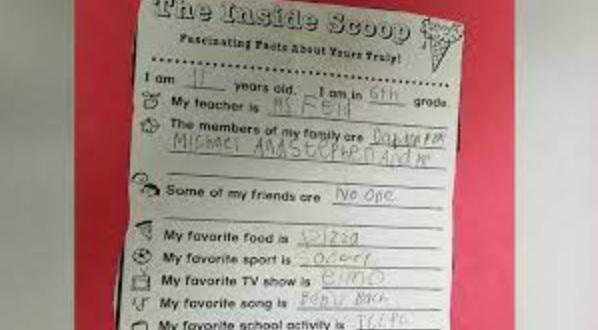 The Inside Scoop
Fascinating Facts About Yours Truly!
I am 11 years old. I am in 6th grade.
My teacher is Ms
The members of my family are
Michael And Stephen And me
Some of my friends are No one
My favorite food is pizza
My favorite sport is Soccer
My favorite TV show is elmo
My favorite song is
My favorite school activity is